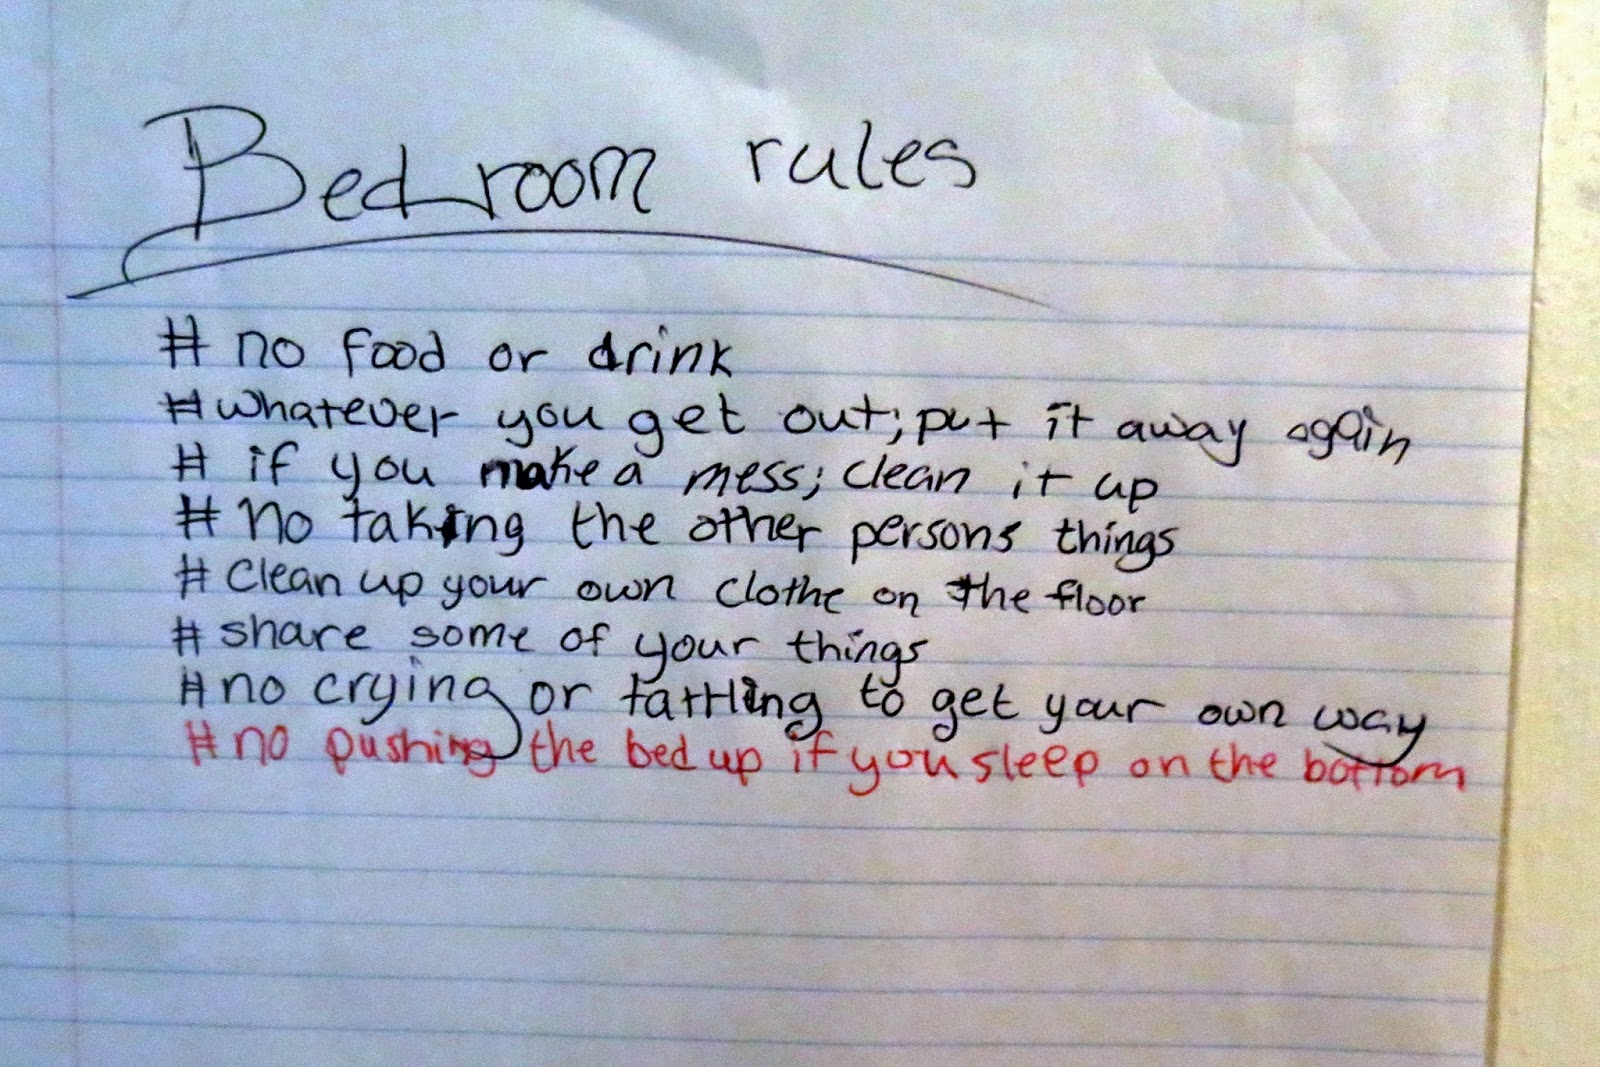 Bedroom rules
# no food or drink
# whatever you get out; put it away again
# if you make a mess; clean it up
# No taking the other persons things
# clean up your own clothe on the floor
# share some of your things
# no crying or tattling to get your own way
# no pushing the bed up if you sleep on the bottom